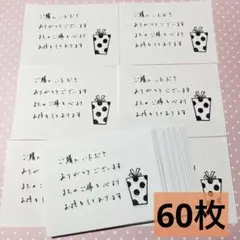 ご購入いただき
ありがとうございます
またのご縁を心より
お待ちしております
ご購入いただき
ありがとうございます
またのご縁を心より
お待ちしております
ご購入いただき
ありがとうございます
またのご縁を心より
お待ちしております
ご購入いただき
ありがとうございます
またのご縁を心より
お待ちしております
ご購入いただき
ありがとうございます
またのご縁を心より
お待ちしております
60枚